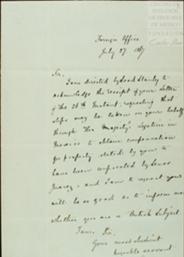 Foreign Office
July 27 1867
Sir,
I am directed by Lord Stanley to
acknowledge the receipt of your letter
of the 26th Instant, requesting that
steps may be taken on your behalf
through Her Majesty's Legation in
Mexico to obtain compensation
for property stated by you to
have been confiscated by
Juarez, and I am to request you
will be so good as to inform me
whether you are a British Subject.
I am, Sir,
Your most obedient
humble servant